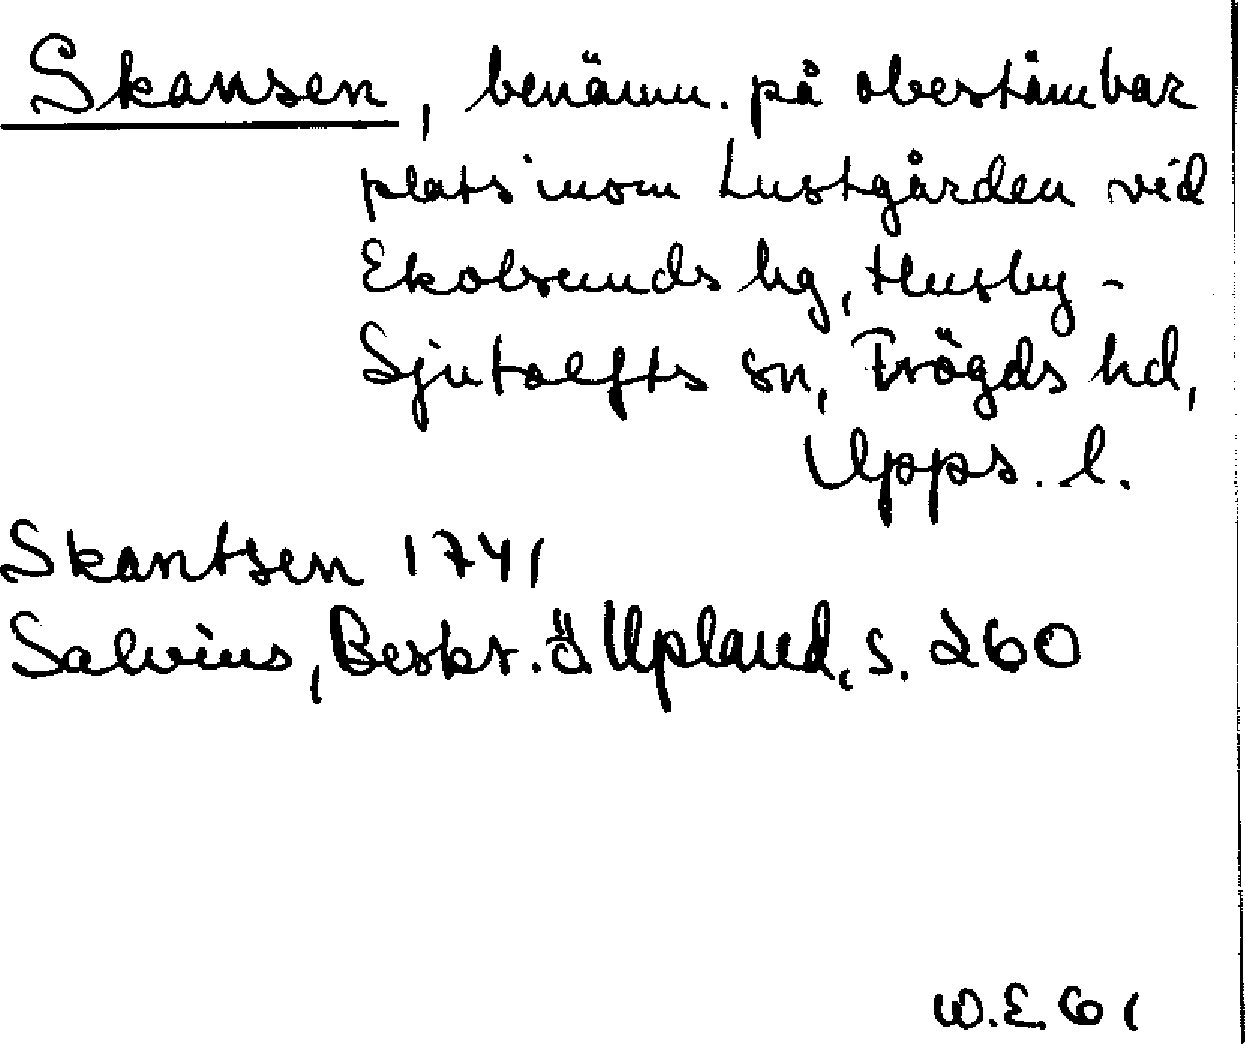 Skansen, benämn. på obestämbar
plats inom Lustgården vid
Ekolsunds hg, Husby-
Sjutolfts sn, Trögds hd,
Upps. l.
Skantsen 1741
Salvius, Beskr. ö. Upland, s. 260
W.E. 61